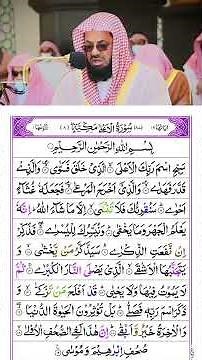 سُوْرَةُ الْاَعْلٰى مَكِّیَّةٌ
بِسْمِ اللّٰهِ الرَّحْمٰنِ الرَّحِیْمِ
سَبِّحِ اسْمَ رَبِّكَ الْاَعْلَى ۝ الَّذِیْ خَلَقَ فَسَوّٰى ۝ وَالَّذِیْ
قَدَّرَ فَهَدٰى ۝ وَالَّذِیْۤ اَخْرَجَ الْمَرْعٰى ۝ فَجَعَلَهٗ غُثَآءً
اَحْوٰى ۝ سَنُقْرِئُكَ فَلَا تَنْسٰۤى ۝ اِلَّا مَا شَآءَ اللّٰهُ اِنَّهٗ
یَعْلَمُ الْجَهْرَ وَمَا یَخْفٰى ۝ وَنُیَسِّرُكَ لِلْیُسْرٰى ۝ فَذَكِّرْ
اِنْ نَّفَعَتِ الذِّكْرٰى ۝ سَیَذَّكَّرُ مَنْ یَّخْشٰى ۝ وَ
یَتَجَنَّبُهَا الْاَشْقَى ۝ الَّذِیْ یَصْلَى النَّارَ الْكُبْرٰى ۝ ثُمَّ
لَا یَمُوْتُ فِیْهَا وَلَا یَحْیٰى ۝ قَدْ اَفْلَحَ مَنْ تَزَكّٰى ۝ وَ
ذَكَرَ اسْمَ رَبِّهٖ فَصَلّٰى ۝ بَلْ تُؤْثِرُوْنَ الْحَیٰوةَ الدُّنْیَا ۝
وَالْاٰخِرَةُ خَیْرٌ وَّاَبْقٰى ۝ اِنَّ هٰذَا لَفِی الصُّحُفِ الْاُوْلٰى ۝
صُحُفِ اِبْرٰهِیْمَ وَمُوْسٰى ۝